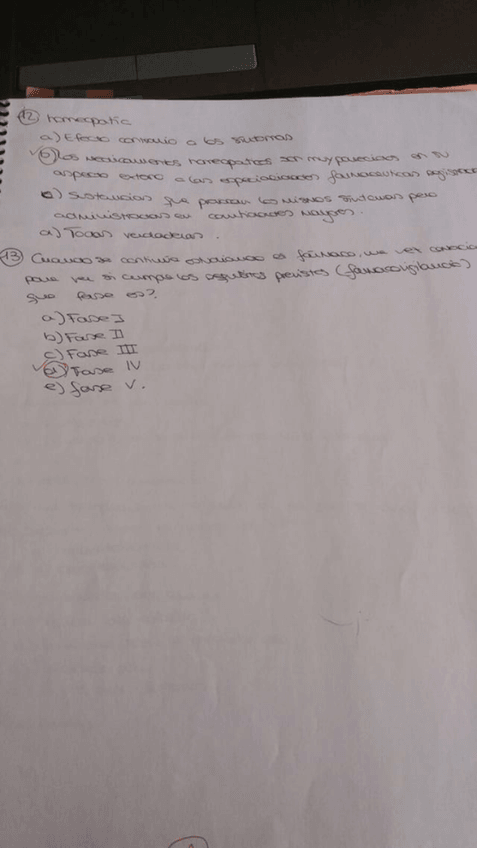 12 homeopatia
a) Efecto contrario a los síntomas
b) Los medicamentos homeopaticos son muy parecidos en su
aspecto externo a las especialidades farmaceuticas registradas
c) Sustancias que producen los mismos síntomas pero
administradas en cantidades mayores.
d) Todas verdaderas.
13 Cuando se continúa estudiando el fármaco, una vez
para ver si cumple los requisitos previstos (farmacovigilancia)
que fase es?
a) Fase I
b) Fase II
c) Fase III
d) Fase IV
e) fase V.